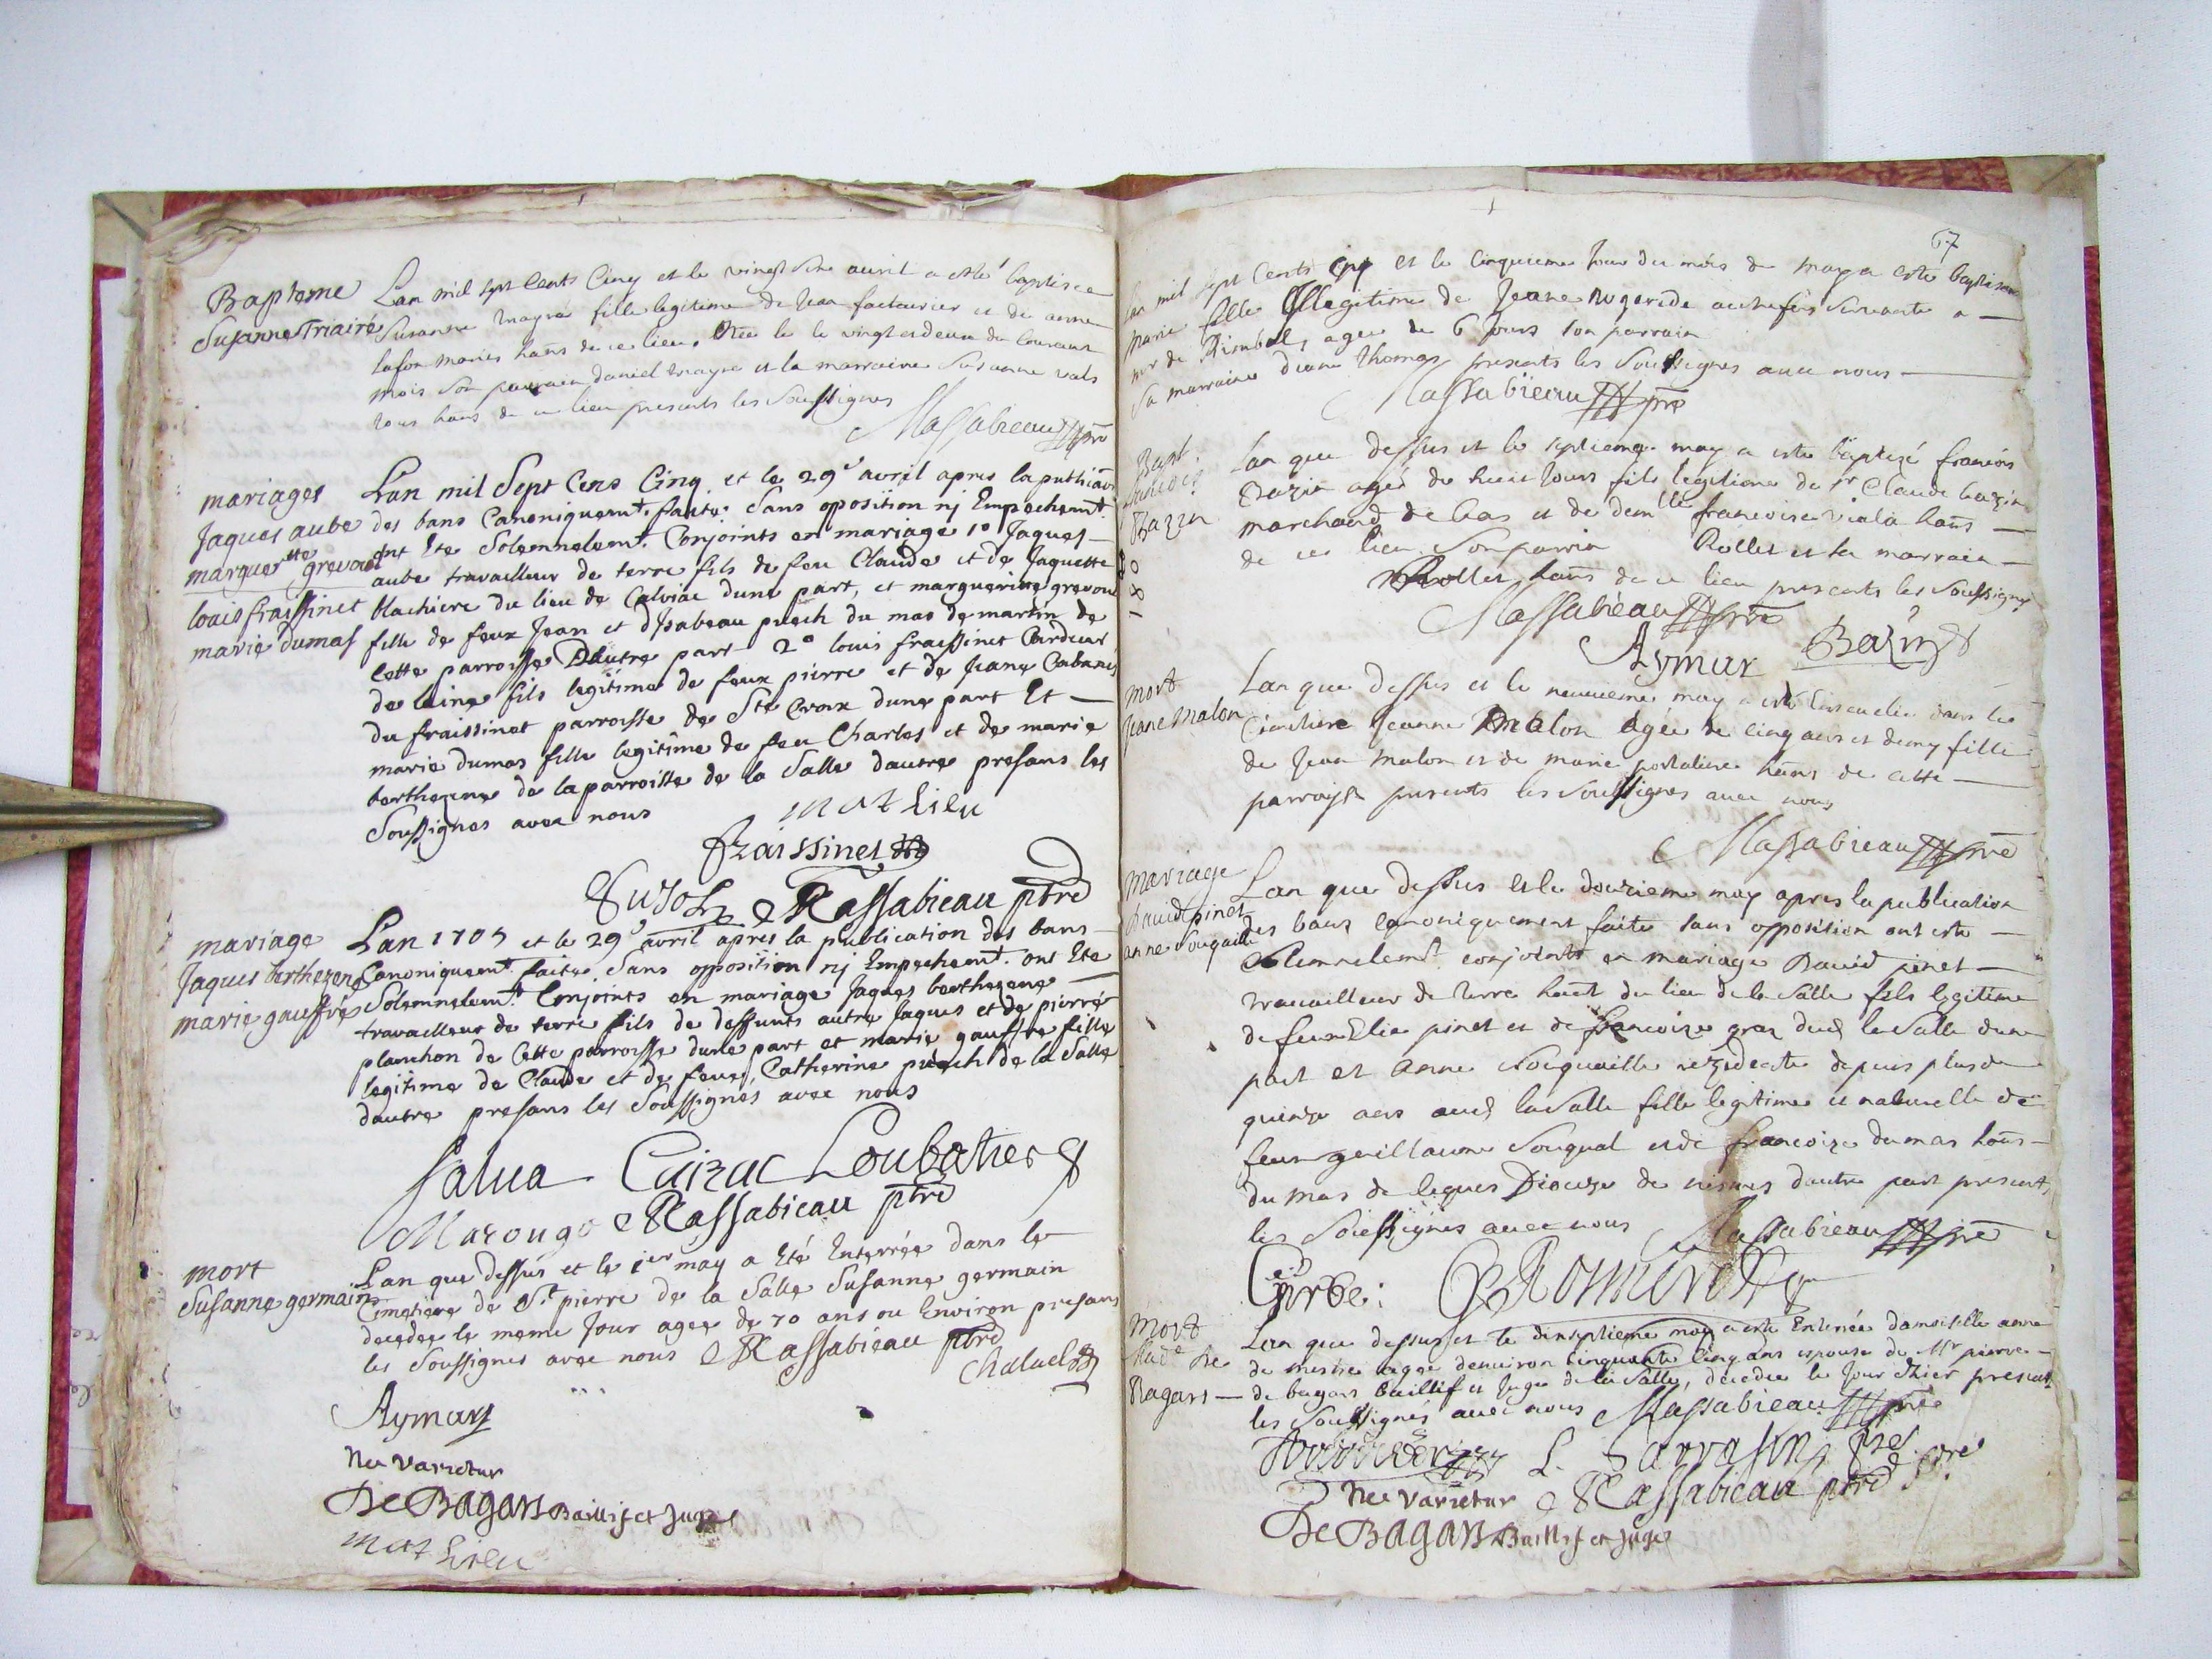 Bapteme
Susanne Triaire
Lan mil sept Cents Cinq et le vingt avril a esté baptisee
Susanne fille legitime de Jean facturier et de anne
lafon maries hans de ce lieu. Née le vingt et deux du courant
mois Son parrain daniel et la marraine Susanne vals
tous hans de ce lieu presents les Soussignes
Massabieau ptre
mariages
Jaques aube
marguer.tte grevoul
louis fraissinet
marie dumas
Lan mil Sept Cens Cinq et le 29e avril apres la publicaon
des bans Canoniquemt. faite Sans oposition nj Empechemt.
ont Ete Solemnelemt. Conjoints en mariage 1o Jaques
aube travailleur de terre fils de feu Claude et de Jaquette
blachiere du lieu de Calviac dune part, et marguerite grevoul
fille de feux Jean et dIsabeau puech du mas de martin de
cette parroisse Dautre part 2o louis fraissinet Cardeur
de laine fils legitime de feux pierre et de Jeane Cabanes
du fraissinet parroisse de Ste Croix dune part Et
marie dumas fille legitime de feu Charles et de marie
berthezene de la parroisse de la Salle dautre presans les
Soussignes avec nous
mathieu
fraissinet
Massabieau ptre
mariage
Jaques berthezene
marie gaussre
Lan 1705 et le 29e avril apres la publication des bans
Canoniquemt. faite Sans opposition nj Empechemt. ont Ete
Solemnelemt. Conjoints en mariage Jaques berthezene
travailleur de terre fils de deffunts autre Jaques et de pierre
planchon de Cette parroisse dune part et marie gaussre fille
legitime de Claude et de feue Catherine puech de la Salle
dautre presans les Soussignés avec nous
Salua Cairac Loubatier
Marouge Massabieau ptre
mort
Susanne germain
Lan que dessus et le 1er may a Eté Enterrée dans le
Cimetiere de St pierre de la Salle Susanne germain
decedee le meme Jour agee de 70 ans ou Environ presans
les Soussignes avec nous Massabieau ptre
Chaluel
Aymar
Ne varietur
De Bagars Baillif et Juge
mathieu
67
Lan mil sept Cents Cinq et le Cinquieme Jour du mois de may a esté baptisee
marie fille Illegitime de Jeane autrefois Servante a
mr de agee de 6 Jours Son parrain
Sa marraine diane thomas presents les Soussignes avec nous
Massabieau ptre
Bapt.
francois
Bazin
180
Lan que dessus et le septieme may a este baptizé francois
Bazin agé de huit Jours fils legitime de Sr. Claude bazin
marchand de bas et de demlle francoise viala hans
de ce lieu. Son parrin Rollet et la marraine
Rollet hans de ce lieu presents les Soussignes
Massabieau ptre
Aymar Bazin
mort
Jeane malon
Lan que dessus et le neuvieme may a esté Ensevelie dans le
Cimetiere Jeanne malon agée de cinq ans et demy fille
de Jean malon et de marie portaliere hans de cette
parroisse presents les Soussignes avec nous
Massabieau ptre
mariage
david pinet
anne
Lan que dessus et le douzieme may apres la publication
des bans canoniquement faite sans opposition ont esté
Solemnelemt conjoints en mariage David pinet
travailleur de terre hant du lieu de la Salle fils legitime
de feu Elie pinet et de francoise gras dud. la Salle dune
part et Anne rezidente depuis plus de
quinze ans aud. la Salle fille legitime et naturelle de
feu guillaume et de francoize dumas hans
du mas de leques Dioceze de nismes dautre part presents
les Soussignes avec nous Massabieau ptre
mort
Made de
Bagars
Lan que dessus et le dixseptieme may a esté Enterrée damoiselle anne
de mestre agee denviron cinquante Cinq ans espouse de Mr pierre
de bagars baillif et Juge de la Salle, decedee le Jour dhier presents
les Soussignés avec nous Massabieau ptre
L. Sarrasin
Ne varietur Massabieau ptre
De Bagars Baillif et Juge